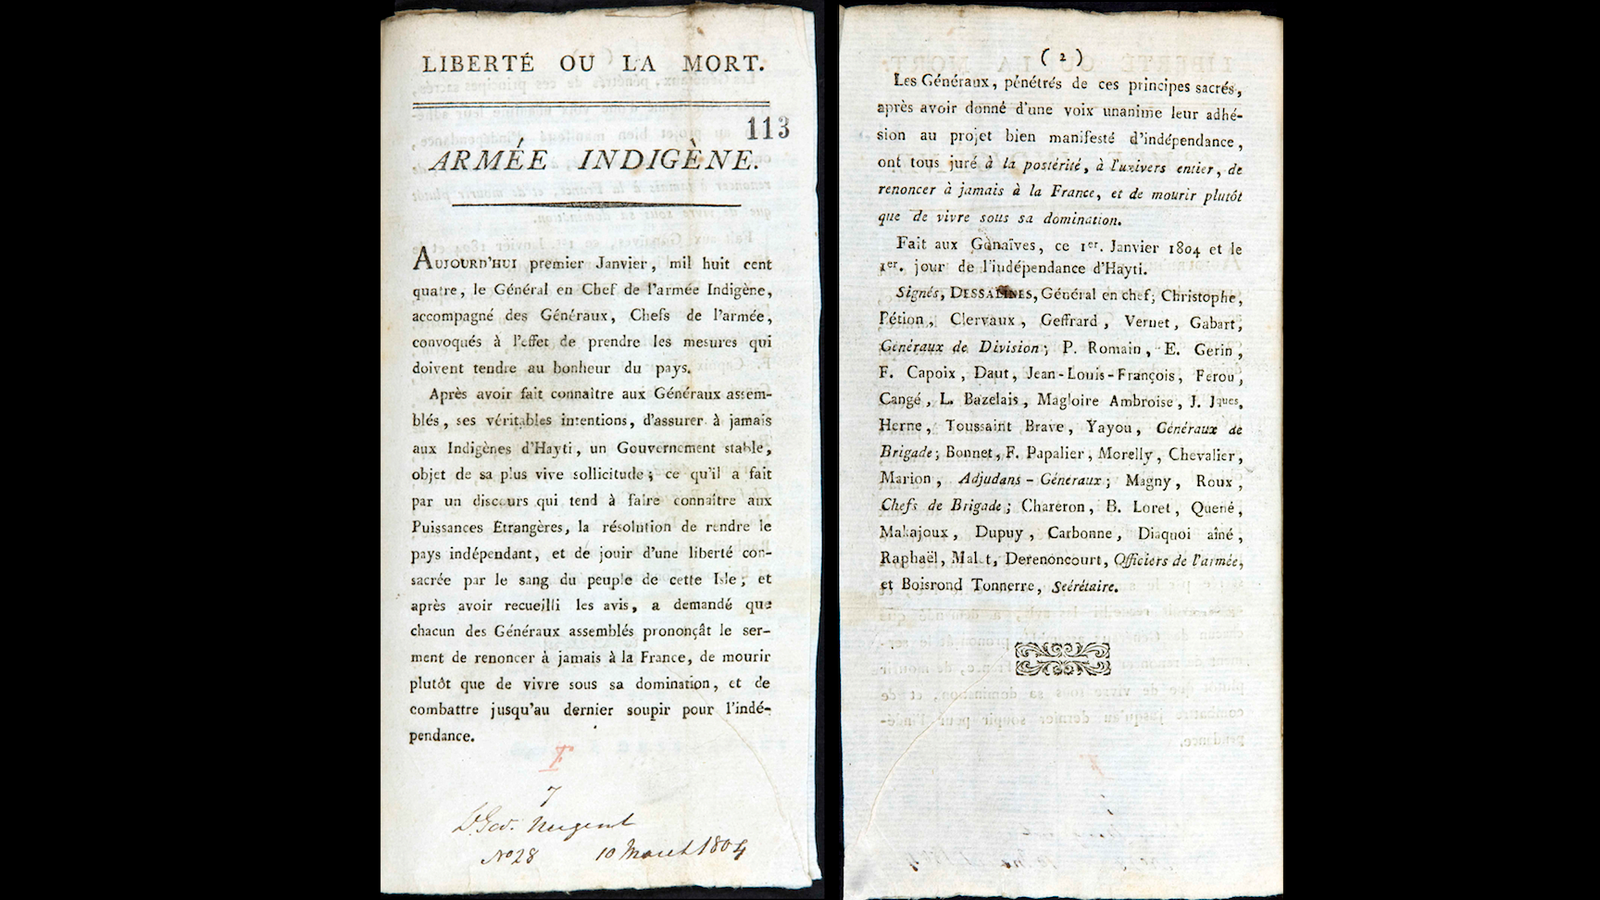 LIBERTÉ OU LA MORT.
113
ARMÉE INDIGÈNE.
AUJOURD'HUI premier Janvier, mil huit cent
quatre, le Général en Chef de l'armée Indigène,
accompagné des Généraux, Chefs de l'armée,
convoqués à l'effet de prendre les mesures qui
doivent tendre au bonheur du pays.
Après avoir fait connaître aux Généraux assem-
blés, ses véritables intentions, d'assurer à jamais
aux Indigènes d'Hayti, un Gouvernement stable,
objet de sa plus vive sollicitude; ce qu'il a fait
par un discours qui tend à faire connaître aux
Puissances Étrangères, la résolution de rendre le
pays indépendant, et de jouir d'une liberté con-
sacrée par le sang du peuple de cette Isle; et
après avoir recueilli les avis, a demandé que
chacun des Généraux assemblés prononçât le ser-
ment de renoncer à jamais à la France, de mourir
plutôt que de vivre sous sa domination, et de
combattre jusqu'au dernier soupir pour l'indé-
pendance.
F
7
Nugent
No 28 10 March 1804
( 2 )
Les Généraux, pénétrés de ces principes sacrés,
après avoir donné d'une voix unanime leur adhé-
sion au projet bien manifesté d'indépendance,
ont tous juré à la postérité, à l'univers entier, de
renoncer à jamais à la France, et de mourir plutôt
que de vivre sous sa domination.
Fait aux Gonaïves, ce 1er. Janvier 1804 et le
1er. jour de l'indépendance d'Hayti.
Signés, DESSALINES, Général en chef; Christophe,
Pétion, Clervaux, Geffrard, Vernet, Gabart,
Généraux de Division; P. Romain, E. Gerin,
F. Capoix, Daut, Jean-Louis-François, Ferou,
Cangé, L. Bazelais, Magloire Ambroise, J. Jques,
Herne, Toussaint Brave, Yayou, Généraux de
Brigade; Bonnet, F. Papalier, Morelly, Chevalier,
Marion, Adjudans-Généraux; Magny, Roux,
Chefs de Brigade; Chareron, B. Loret, Quené,
Makajoux, Dupuy, Carbonne, Diaquoi aîné,
Raphaël, Malet, Derenoncourt, Officiers de l'armée,
et Boisrond Tonnerre, Secrétaire.